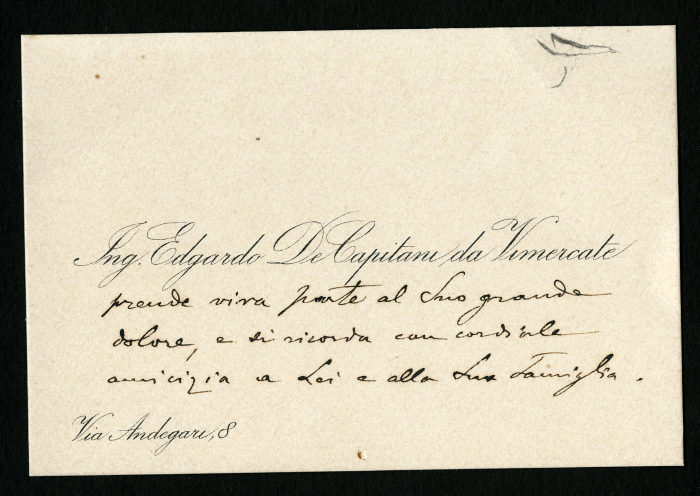 Ing. Edgardo De Capitani da Vimercate
prende viva parte al Suo grande
dolore, e si ricorda con cordiale
amicizia a Lei e alla Sua Famiglia.
Via Andegari, 8